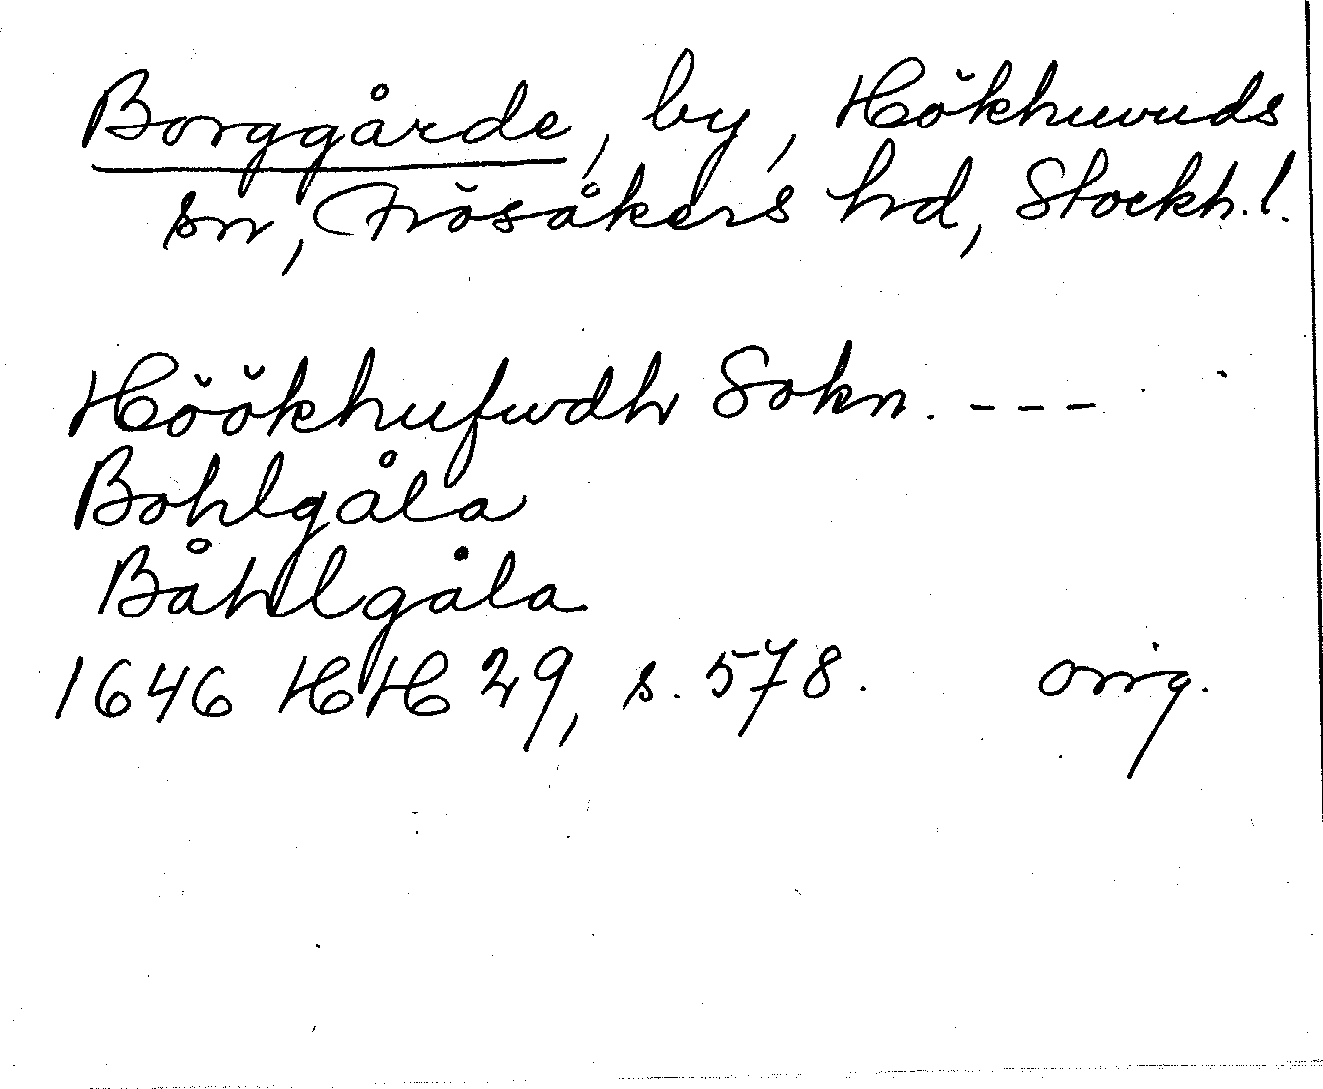 Borggårde, by, Hökhuvuds
sn, Frösåkers hd, Stockh. l.
Höökhufwdh Sokn. - - -
Bohlgåla
Båhlgåla
1646 HH 29, s. 578. orig.